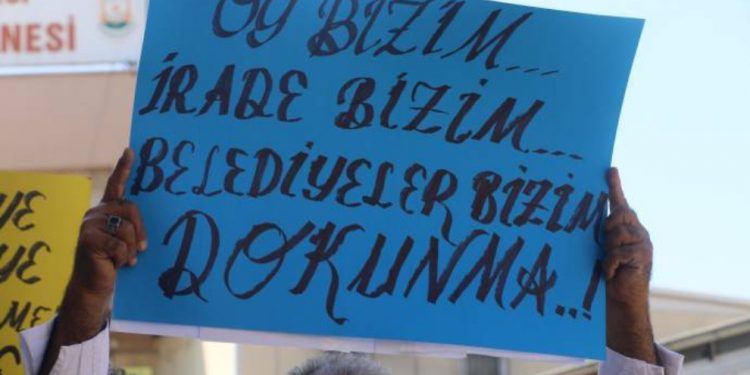 NESİ
OY BİZİM...
İRADE BİZİM...
BELEDİYELER BİZİM
DOKUNMA..!
YE
YE
ME